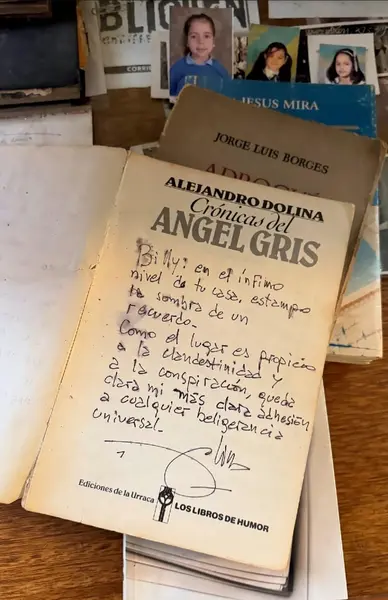 BLIO
CORRE
JESUS MIRA
JORGE LUIS BORGES
ADROGUÉ
ALEJANDRO DOLINA
Crónicas del
ANGEL GRIS
Billy: en el ínfimo
nivel de tu casa, estampo
la sombra de un
recuerdo.-
Como el lugar es propicio
a la clandestinidad y
a la conspiración, queda
clara mi más clara adhesión
a cualquier beligerancia
universal.
Ediciones de la Urraca
LOS LIBROS DE HUMOR